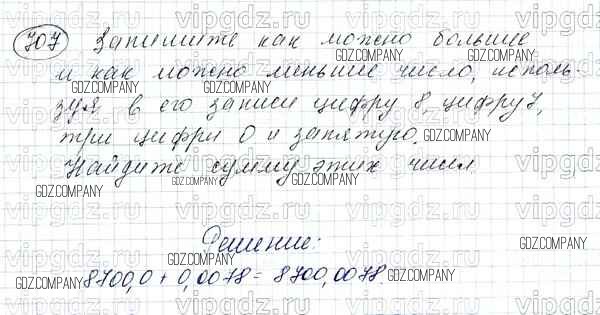 707 Запишите как можно больше
и как можно меньше число, исполь-
зуя в его записи цифру 8, цифру 7,
три цифры 0 и запятую.
Найдите сумму этих чисел
Решение:
8700,0 + 0,0078 = 8700,0078.
vipgdz.ru
GDZ.COMPANY